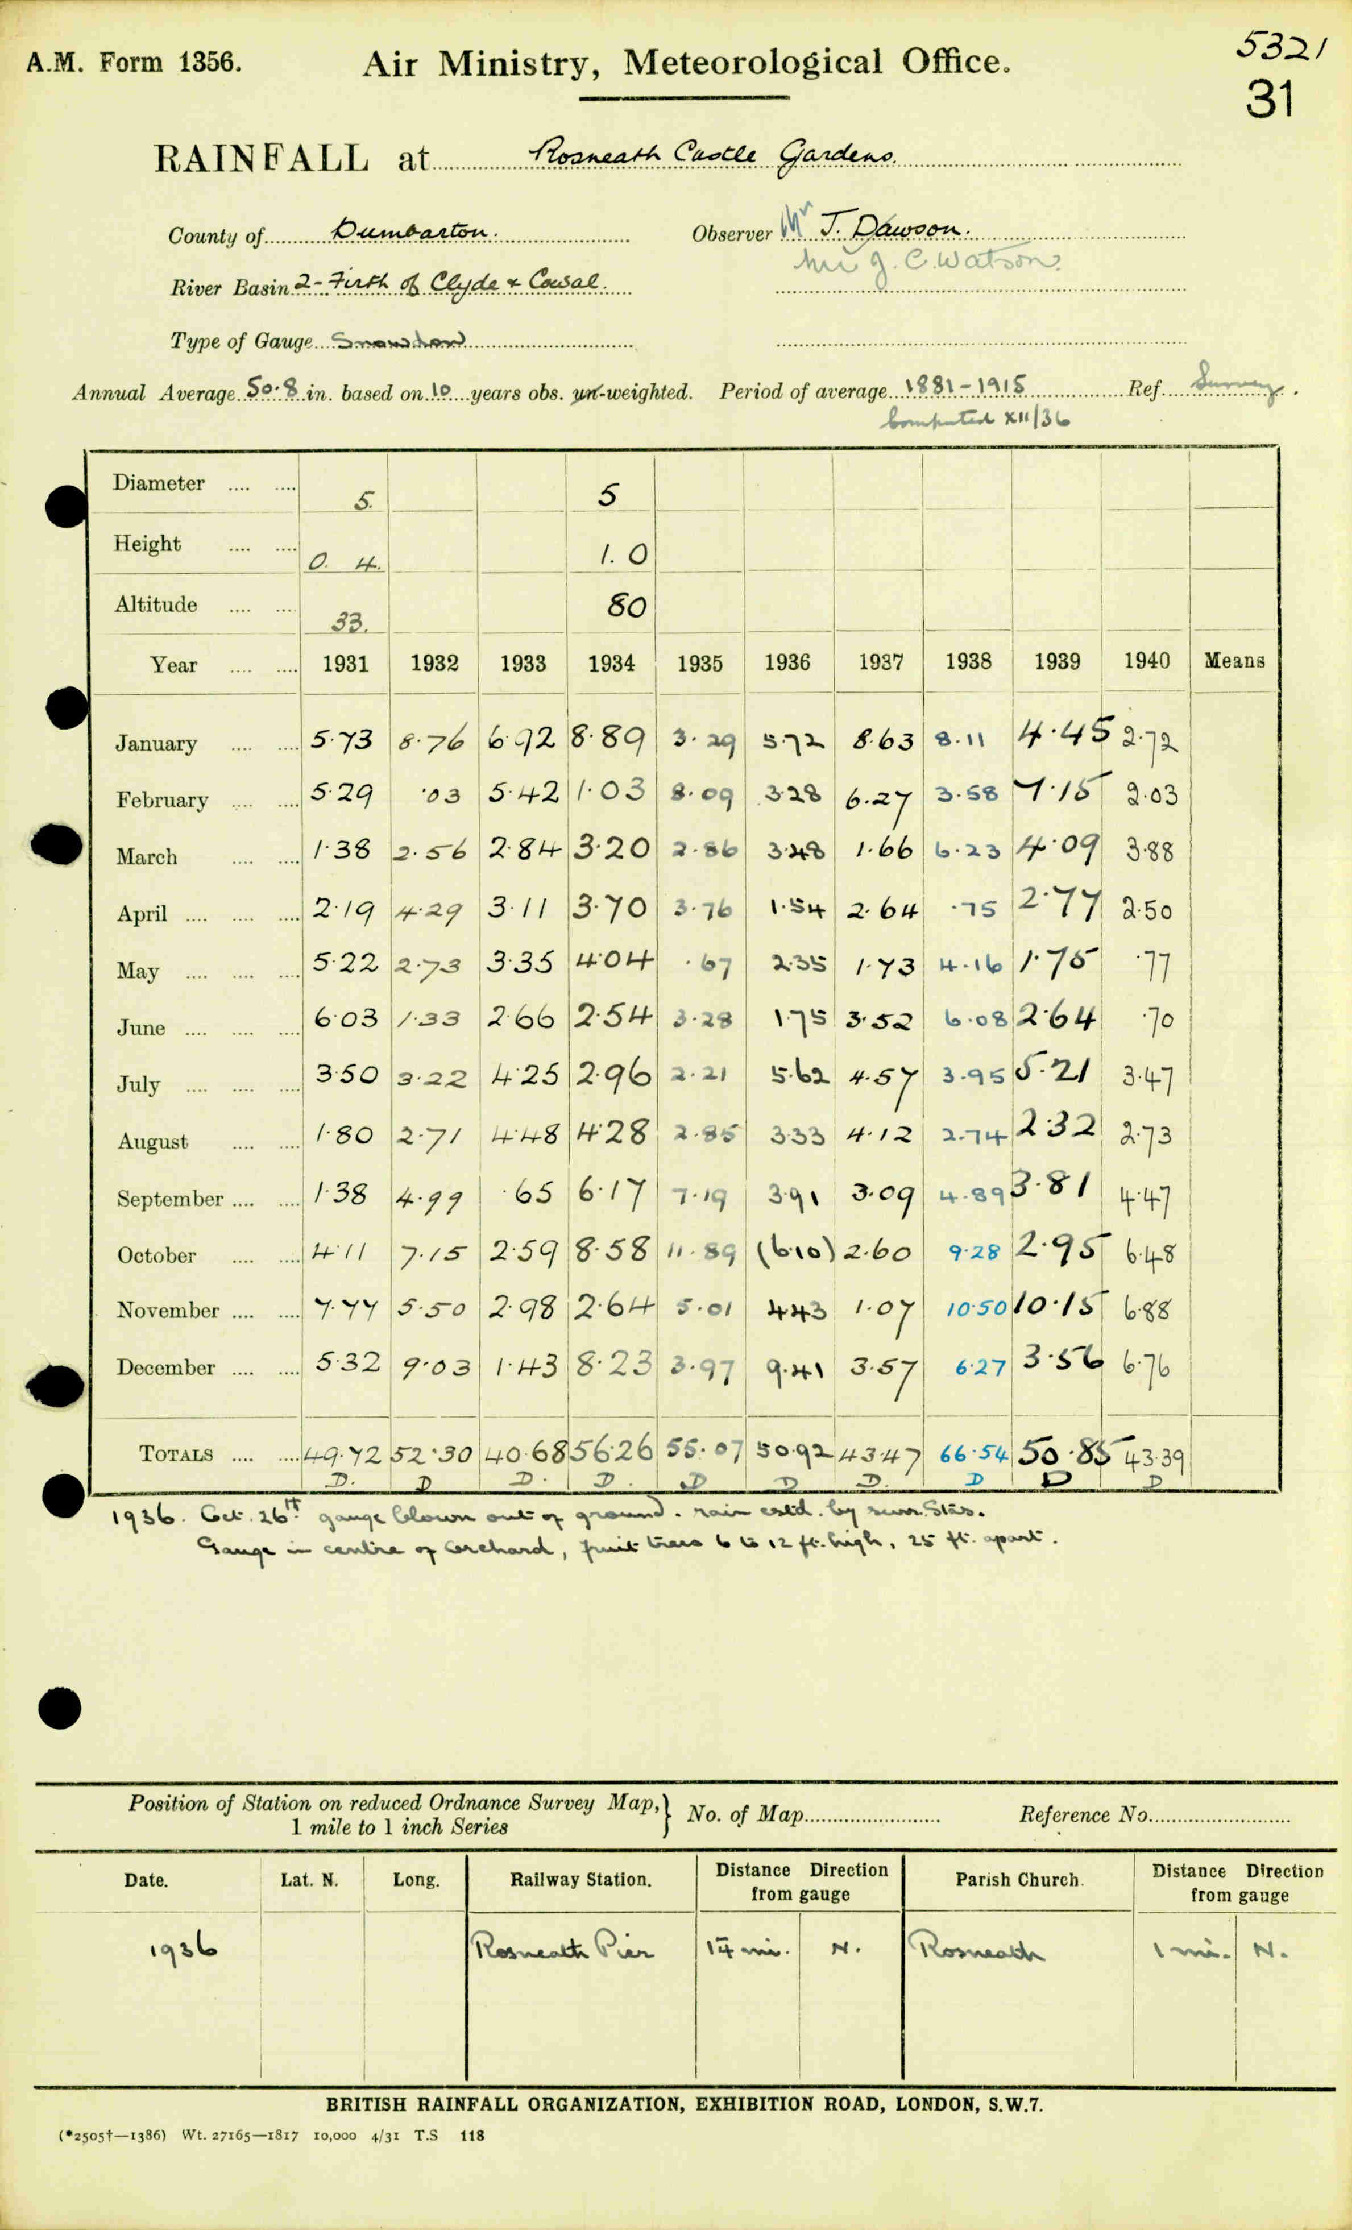 5321
A.M. Form 1356. Air Ministry, Meteorological Office.
31
RAINFALL at Rosneath Castle Gardens.
County of Dumbarton. Observer Mr J. Dawson.
Mr J. C. Watson.
River Basin 2-Firth of Clyde & Cowal.
Type of Gauge Snowdon
Annual Average 50.8 in. based on 10 years obs. un-weighted. Period of average 1881-1915 Ref. Survey.
Computed XII/36
Diameter .... .... 5. 5
Height .... .... 0. 4. 1. 0
Altitude .... .... 33. 80
Year .... .... 1931 1932 1933 1934 1935 1936 1937 1938 1939 1940 Means
January .... .... 5.73 8.76 6.92 8.89 3.29 5.72 8.63 8.11 4.45 2.72
February .... .... 5.29 .03 5.42 1.03 8.09 3.28 6.27 3.58 7.15 2.03
March .... .... 1.38 2.56 2.84 3.20 2.86 3.48 1.66 6.23 4.09 3.88
April .... .... .... 2.19 4.29 3.11 3.70 3.76 1.54 2.64 .75 2.77 2.50
May .... .... .... 5.22 2.73 3.35 4.04 .67 2.35 1.73 4.16 1.75 .77
June .... .... .... 6.03 1.33 2.66 2.54 3.28 1.75 3.52 6.08 2.64 .70
July .... .... .... 3.50 3.22 4.25 2.96 2.21 5.62 4.57 3.95 5.21 3.47
August .... .... 1.80 2.71 4.48 4.28 2.85 3.33 4.12 2.74 2.32 2.73
September .... .... 1.38 4.99 .65 6.17 7.19 3.91 3.09 4.89 3.81 4.47
October .... .... 4.11 7.15 2.59 8.58 11.89 (6.10) 2.60 9.28 2.95 6.48
November .... .... 7.77 5.50 2.98 2.64 5.01 4.43 1.07 10.50 10.15 6.88
December .... .... 5.32 9.03 1.43 8.23 3.97 9.41 3.57 6.27 3.56 6.76
TOTALS .... .... 49.72 52.30 40.68 56.26 55.07 50.92 43.47 66.54 50.85 43.39
D. D D. D. D D D. D D D
1936. Oct. 26th gauge blown out of ground. rain estd. by surr. Stns.
Gauge in centre of Orchard, fruit trees 6 to 12 ft. high, 25 ft. apart.
Position of Station on reduced Ordnance Survey Map,} No. of Map Reference No.
1 mile to 1 inch Series
Date. Lat. N. Long. Railway Station. Distance Direction from gauge Parish Church. Distance Direction from gauge
1936 Rosneath Pier mi. N. Rosneath 1 mi. N.
BRITISH RAINFALL ORGANIZATION, EXHIBITION ROAD, LONDON, S.W.7.
(*2505†—1386) Wt. 27165—1817 10,000 4/31 T.S 118